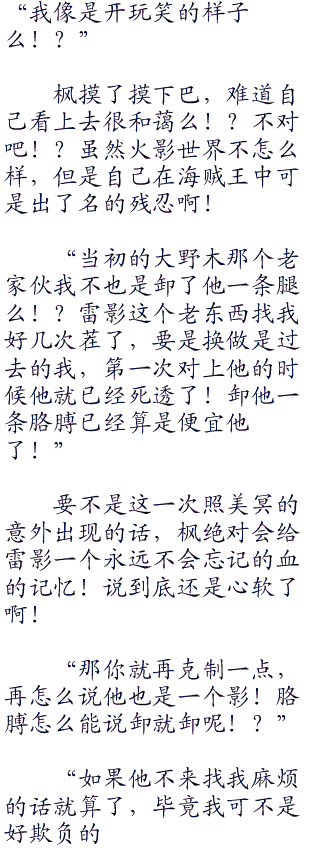 “我像是开玩笑的样子
么！？”
枫摸了摸下巴，难道自
己看上去很和蔼么！？不对
吧！？虽然火影世界不怎么
样，但是自己在海贼王中可
是出了名的残忍啊！
“当初的大野木那个老
家伙我不也是卸了他一条腿
么！？雷影这个老东西找我
好几次茬了，要是换做是过
去的我，第一次对上他的时
候他就已经死透了！卸他一
条胳膊已经算是便宜他
了！”
要不是这一次照美冥的
意外出现的话，枫绝对会给
雷影一个永远不会忘记的血
的记忆！说到底还是心软了
啊！
“那你就再克制一点，
再怎么说他也是一个影！胳
膊怎么能说卸就卸呢！？”
“如果他不来找我麻烦
的话就算了，毕竟我可不是
好欺负的